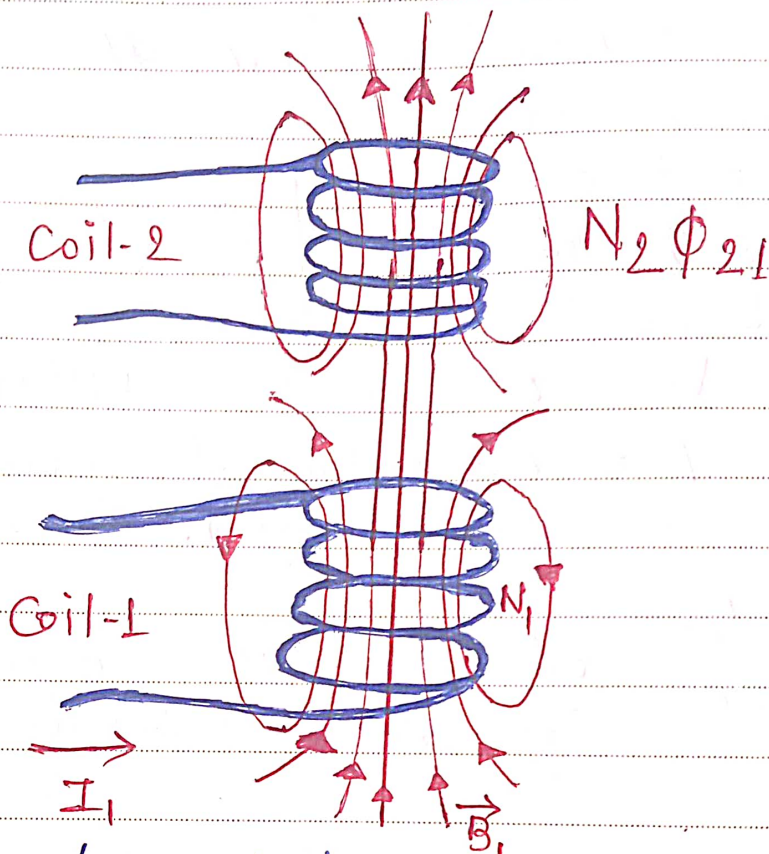 Coil-2
N₂ ϕ₂₁
Coil-1
N₁
I₁
B⃗₁